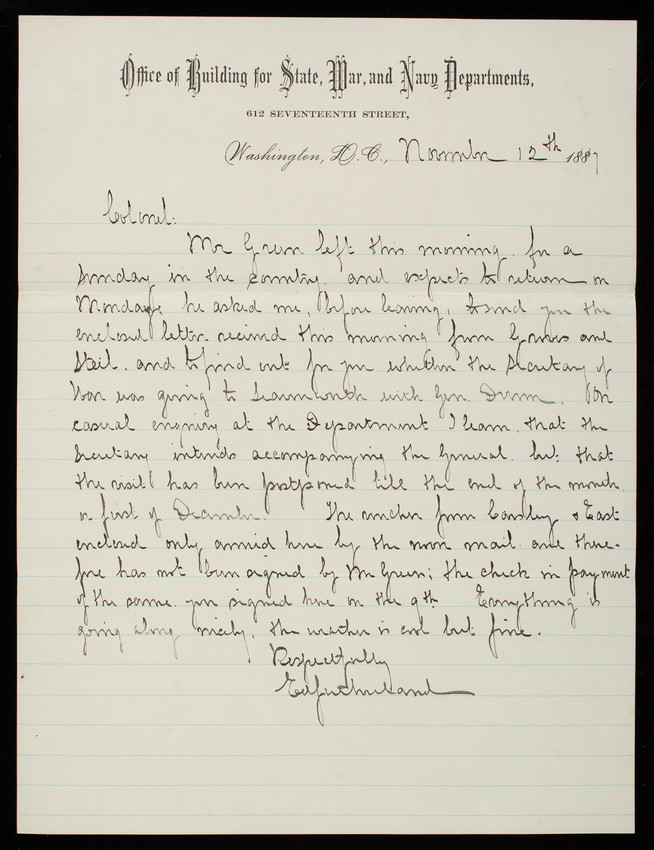 Office of Building for State, War, and Navy Departments,
612 SEVENTEENTH STREET,
Washington, D.C., November 12th 1887
Colonel:
Mr Green left this morning for a
Sunday in the country and expects to return on
Monday, he asked me, before leaving, to send you the
enclosed letter received this morning from Graves and
Steil. and to find out for you whether the Secretary of
War was going to Leavenworth with Gen. Drum. On
casual enquiry at the Department I learn, that the
Secretary intends accompanying the General. but that
the visit has been postponed till the end of the month
or first of December. The voucher from Cassley & East
enclosed only arrived here by the noon mail and there-
fore has not been signed by Mr Green; the check in payment
of the same you signed here on the 9th Everything is
going along nicely, the weather is cool but fine.
Respectfully